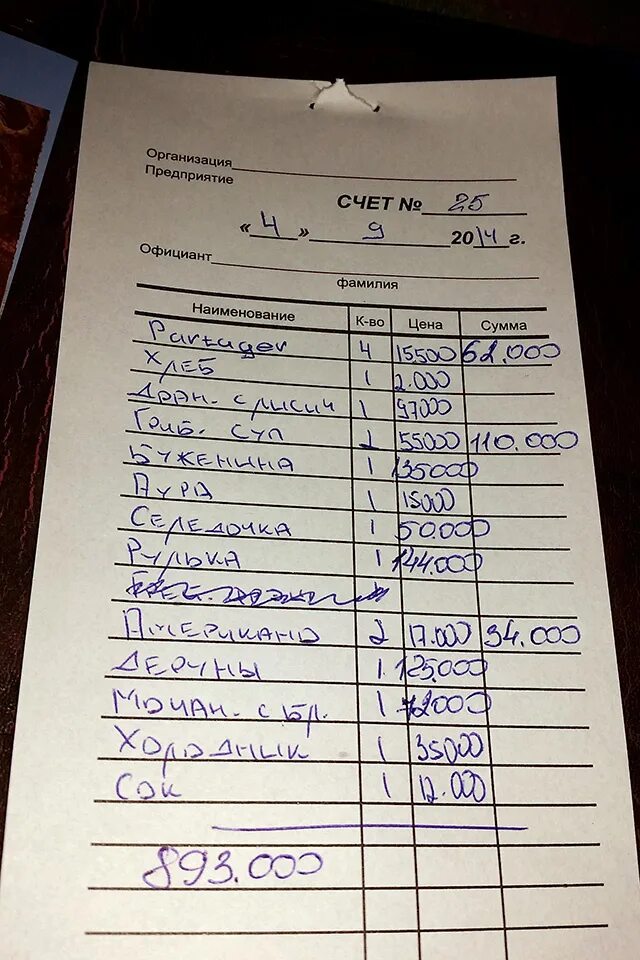 Организация
Предприятие
СЧЕТ № 25
« 4 » 9 2014 г.
Официант
фамилия
Наименование К-во Цена Сумма
Partager 4 15500 62.000
ХЛЕБ 1 2.000
Дран. с лисич 1 97000
Гриб. суп 2 55000 110.000
БУЖЕНИНА 1 135000
АУРА 1 15000
СЕЛЕДОЧКА 1 50.000
РУЛЬКА 1 144.000
АМЕРИКАНО 2 17.000 34.000
ДЕРУНЫ 1 125.000
МОЧАН. с БЛ. 1 72000
ХОЛОДНИК 1 35000
СОК 1 12.000
893.000